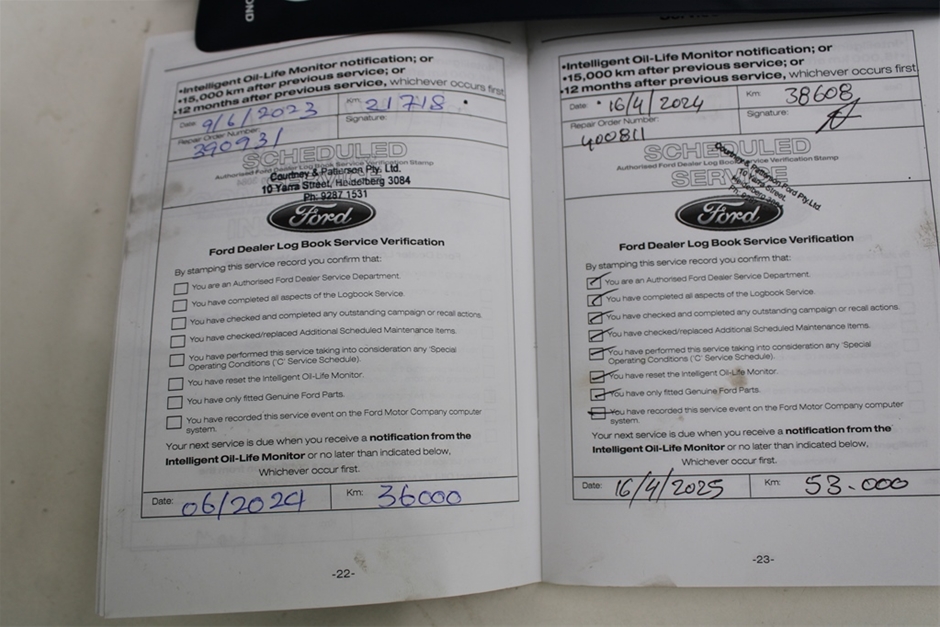 OND
•Intelligent Oil-Life Monitor notification; or
•15,000 km after previous service; or
•12 months after previous service, whichever occurs first
Date: 9/6/2023 Km: 21718
Repair Order Number: Signature:
390931
SCHEDULED
Authorised Ford Dealer Log Book Service Verification Stamp
SERVICE
Courtney & Patterson Pty. Ltd.
10 Yarra Street, Heidelberg 3084
Ph. 9287 1531
Ford
Ford Dealer Log Book Service Verification
By stamping this service record you confirm that:
You are an Authorised Ford Dealer Service Department.
You have completed all aspects of the Logbook Service.
You have checked and completed any outstanding campaign or recall actions.
You have checked/replaced Additional Scheduled Maintenance Items.
You have performed this service taking into consideration any 'Special
Operating Conditions ('C' Service Schedule).
You have reset the Intelligent Oil-Life Monitor.
You have only fitted Genuine Ford Parts.
You have recorded this service event on the Ford Motor Company computer
system.
Your next service is due when you receive a notification from the
Intelligent Oil-Life Monitor or no later than indicated below,
Whichever occur first.
Date: 06/2024 Km: 36000
-22-
•Intelligent Oil-Life Monitor notification; or
•15,000 km after previous service; or
•12 months after previous service, whichever occurs first
Date: 16/4/2024 Km: 38608
Repair Order Number: Signature:
400811
SCHEDULED
Authorised Ford Dealer Log Book Service Verification Stamp
SERVICE
Courtney & Patterson Ford Pty. Ltd
10 Yarra Street,
Heidelberg 3084
Ford
Ford Dealer Log Book Service Verification
By stamping this service record you confirm that:
You are an Authorised Ford Dealer Service Department.
You have completed all aspects of the Logbook Service.
You have checked and completed any outstanding campaign or recall actions.
You have checked/replaced Additional Scheduled Maintenance Items.
You have performed this service taking into consideration any 'Special
Operating Conditions ('C' Service Schedule).
You have reset the Intelligent Oil-Life Monitor.
You have only fitted Genuine Ford Parts.
You have recorded this service event on the Ford Motor Company computer
system.
Your next service is due when you receive a notification from the
Intelligent Oil-Life Monitor or no later than indicated below,
Whichever occur first.
Date: 16/4/2025 Km: 53.000
-23-